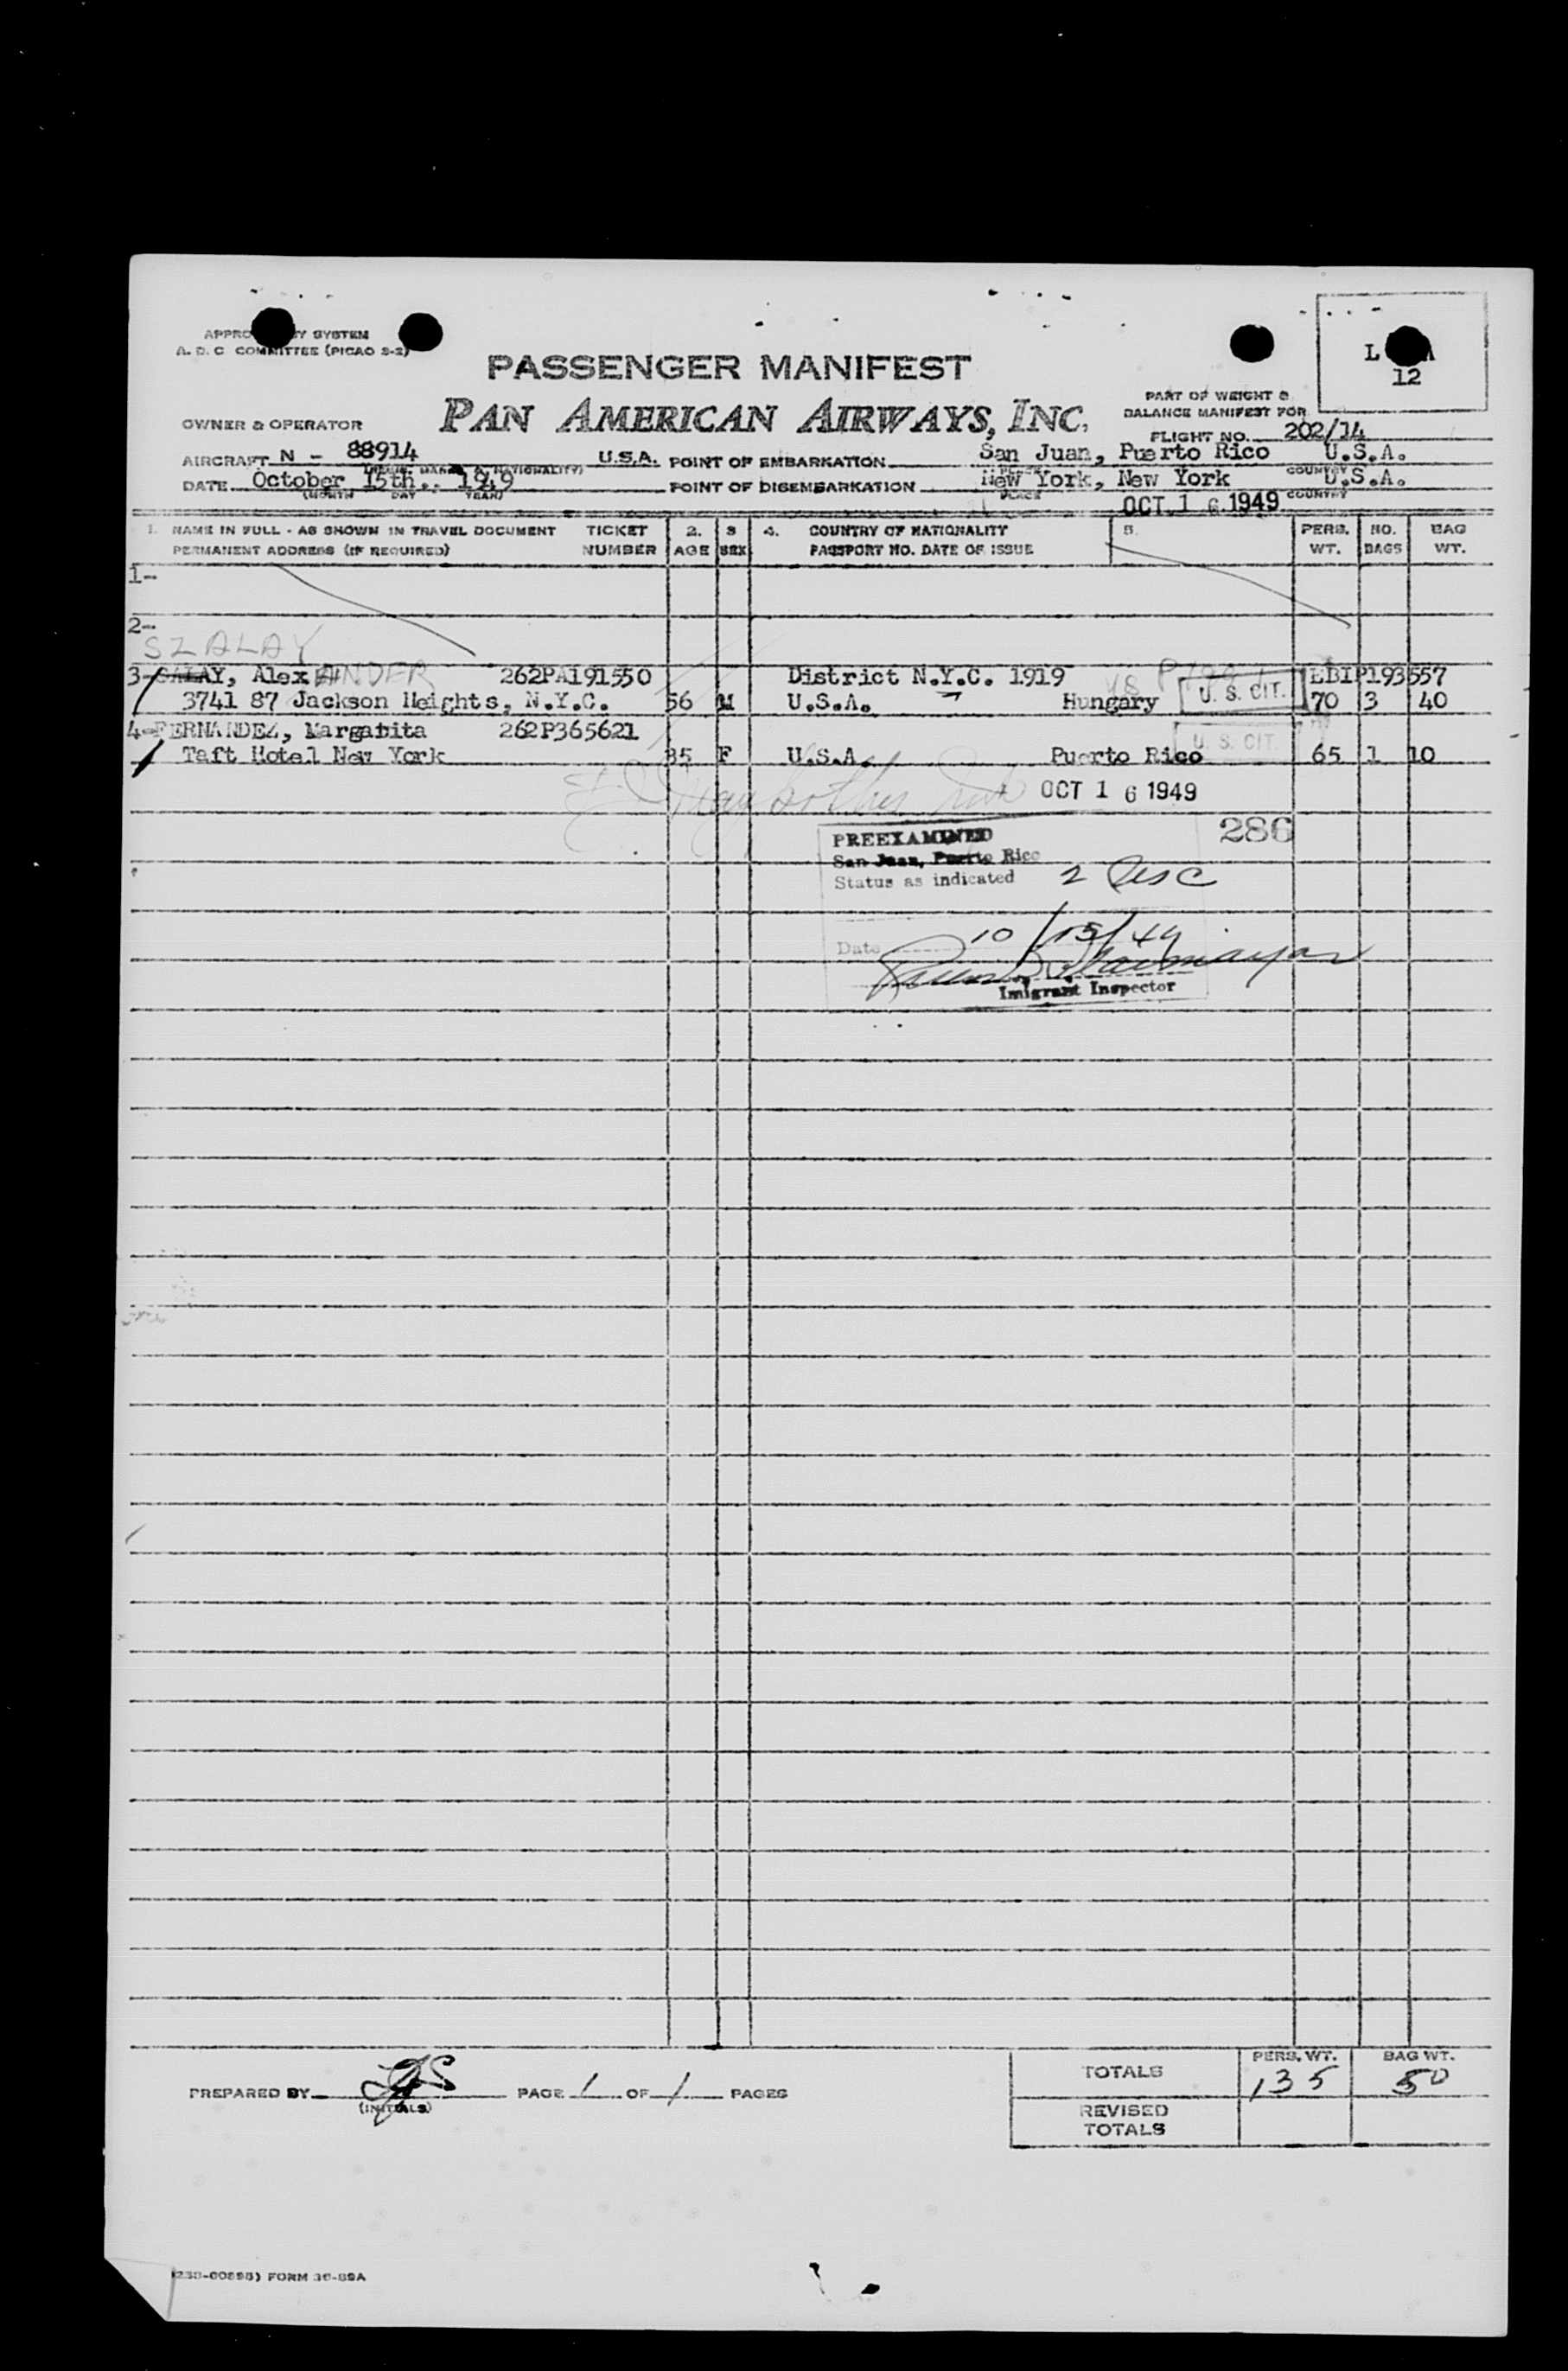 APPRO Y SYSTEM
A. D. C COMMITTEE (PICAO S-2)
L A
12
PASSENGER MANIFEST
PAN AMERICAN AIRWAYS, INC.
PART OF WEIGHT &
BALANCE MANIFEST FOR
OWNER & OPERATOR
FLIGHT NO. 202/14
AIRCRAFT N - 88914 U.S.A. POINT OF EMBARKATION San Juan, Puerto Rico U.S.A.
DATE October 15th., 1949 POINT OF DISEMBARKATION New York, New York U.S.A.
(MONTH DAY YEAR) PLACE COUNTRY
OCT 1 6 1949
1. NAME IN FULL - AS SHOWN IN TRAVEL DOCUMENT TICKET 2. 3 4. COUNTRY OF NATIONALITY 5. PERS. NO. BAG
PERMANENT ADDRESS (IF REQUIRED) NUMBER AGE SEX PASSPORT NO. DATE OF ISSUE WT. BAGS WT.
1-
2-
SZALAY
3-SALAY, Alex ANDER 262PA191550 District N.Y.C. 1919 EBIP193557
3741 87 Jackson Heights, N.Y.C. 56 M U.S.A. Hungary U. S. CIT. 70 3 40
4-FERNANDEZ, Margarita 262P365621
Taft Hotel New York 35 F U.S.A. Puerto Rico U. S. CIT. 65 1 10
OCT 1 6 1949
286
PREEXAMINED
San Juan, Puerto Rico
Status as indicated 2 Usc
Date 10/15/49
Imigrant Inspector
PREPARED BY
(INITIALS)
PAGE 1 OF 1 PAGES
TOTALS PERS. WT. 135 BAG WT. 50
REVISED
TOTALS
FORM 36-89A